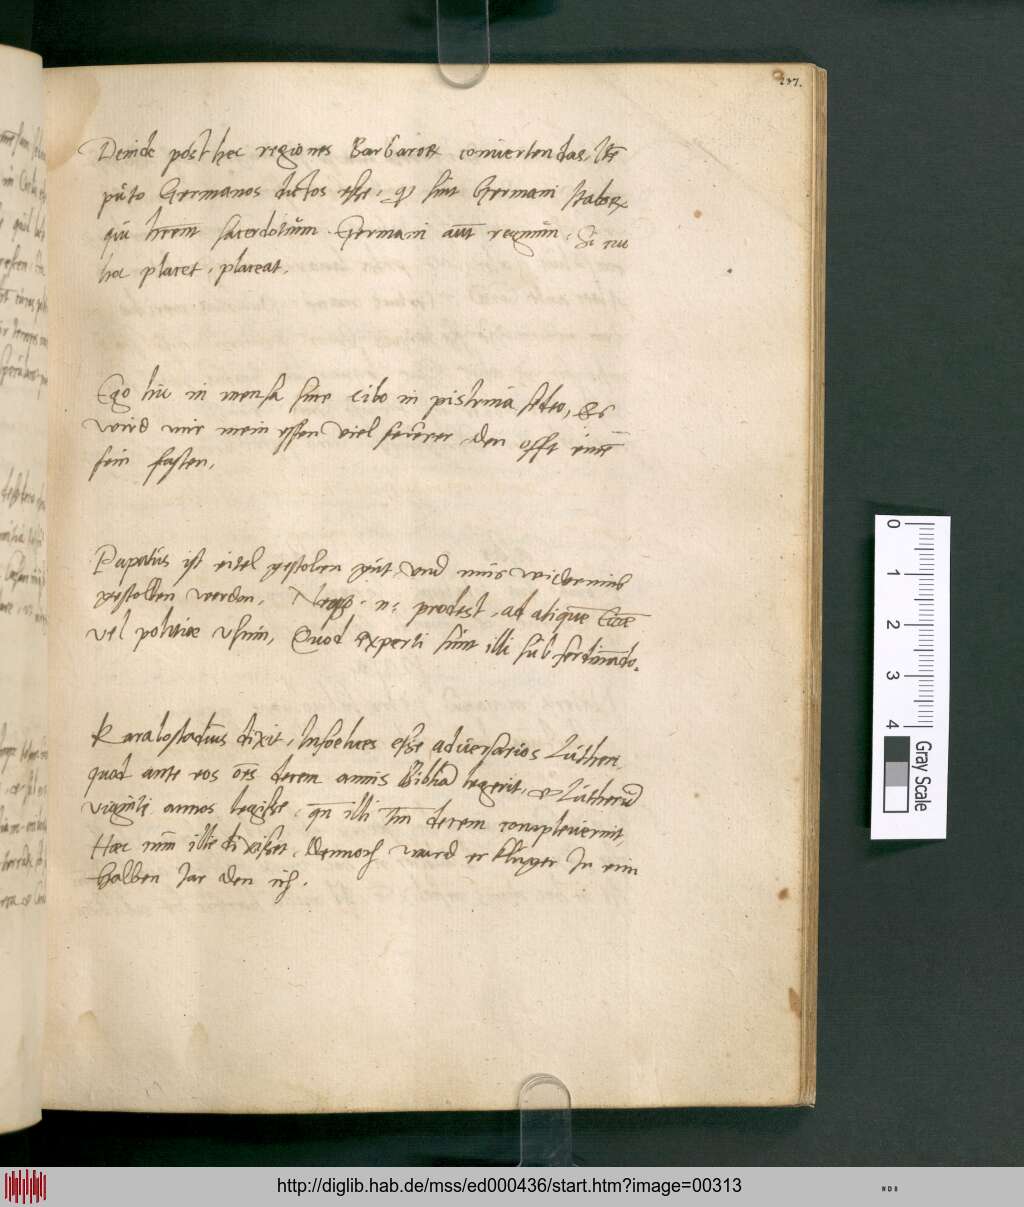 237.
Deinde post hec regiones Barbarorꝝ convertendas. Itē
puto Germanos dictos esse, qͩ sint Germani Italorꝝ
qui hrent sacerdotium. Germani aūt regnum. Si nū
hoc placet, placeat.
Ego hic in mensa sine cibo in pistrina sedeo, Es
wird mir mein essen viel seurer den offt einē
sein fasten.
Papatus ist eitel gestolen gut, und mus widerumb
gestollen werden. Neqȝ n: prodest, ad aliquē Ecciae
vel politiae usum, Quod experti sunt illi sub ferdinādo.
Karalostadius dixit, Infoelices esse adversarios Lutheri,
quod ante eos oēs decem annis Bibliā legerit, et Lutherū
viginti annos legisse, qn illi tm decem compleverint,
Haec cum ille dixisset, Dennoch ward er kluger In eim
halben Jar den ich.
0
1
2
3
4
Gray Scale
http://diglib.hab.de/mss/ed000436/start.htm?image=00313